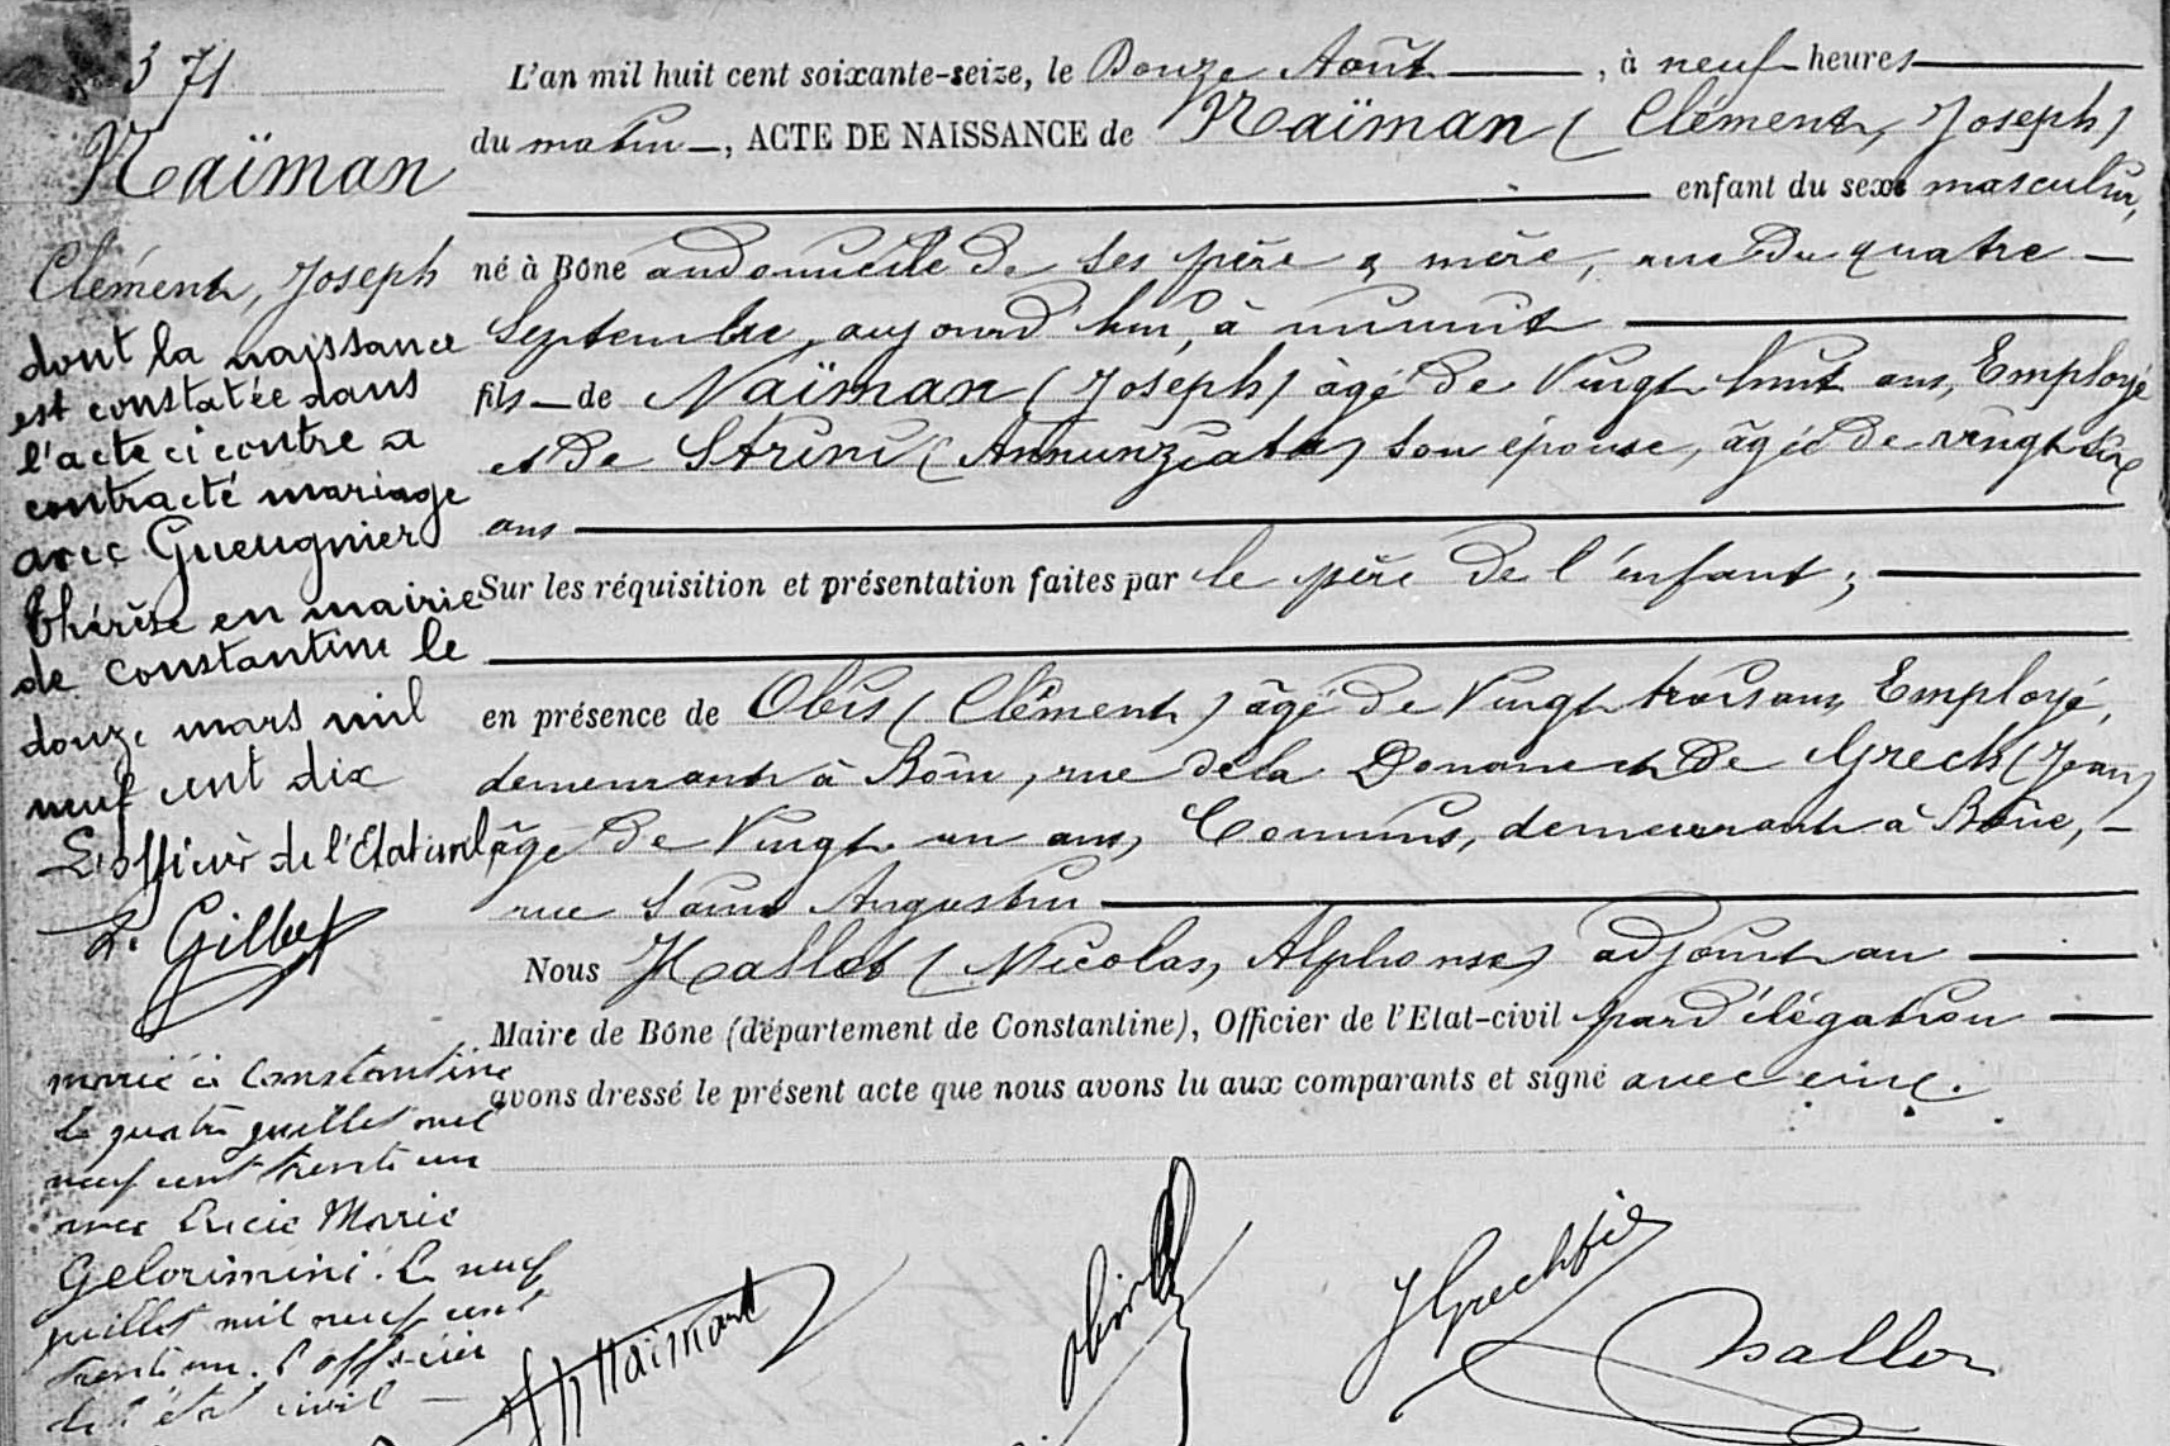 371
Naïman
Clément, Joseph
dont la naissance
est constatée dans
l'acte ci contre a
contracté mariage
avec Gueugnier
Thérèse en mairie
de Constantine le
douze mars mil
neuf cent dix
L'officier de l'Etat civil
L. Gilbet
marié à Constantine
le quatre juillet mil
neuf cent trente un
avec Lucie Marie
Gelorimini. Le neuf
juillet mil neuf cent
trente un. l'officier
de l'état civil
L'an mil huit cent soixante-seize, le Douze Août, à neuf heures
du matin, ACTE DE NAISSANCE de Naïman (Clément, Joseph)
enfant du sexe masculin,
né à Bône au domicile de ses père & mère, rue du quatre
Septembre, aujourd'hui, à minuit
fils de Naïman (Joseph) âgé de Vingt huit ans, Employé
et de Strini (Annunziata) son épouse, âgée de vingt six
ans
Sur les réquisition et présentation faites par le père de l'enfant;
en présence de Obis (Clément) âgé de Vingt trois ans, Employé,
demeurant à Bône, rue de la Douane et de Grech (Jean)
âgé de Vingt un ans, Commis, demeurant à Bône,
rue Saint Augustin
Nous Hallot (Nicolas, Alphonse) adjoint au
Maire de Bône (département de Constantine), Officier de l'Etat-civil par délégation
avons dressé le présent acte que nous avons lu aux comparants et signé avec eux.
Naïman
JGrech fils